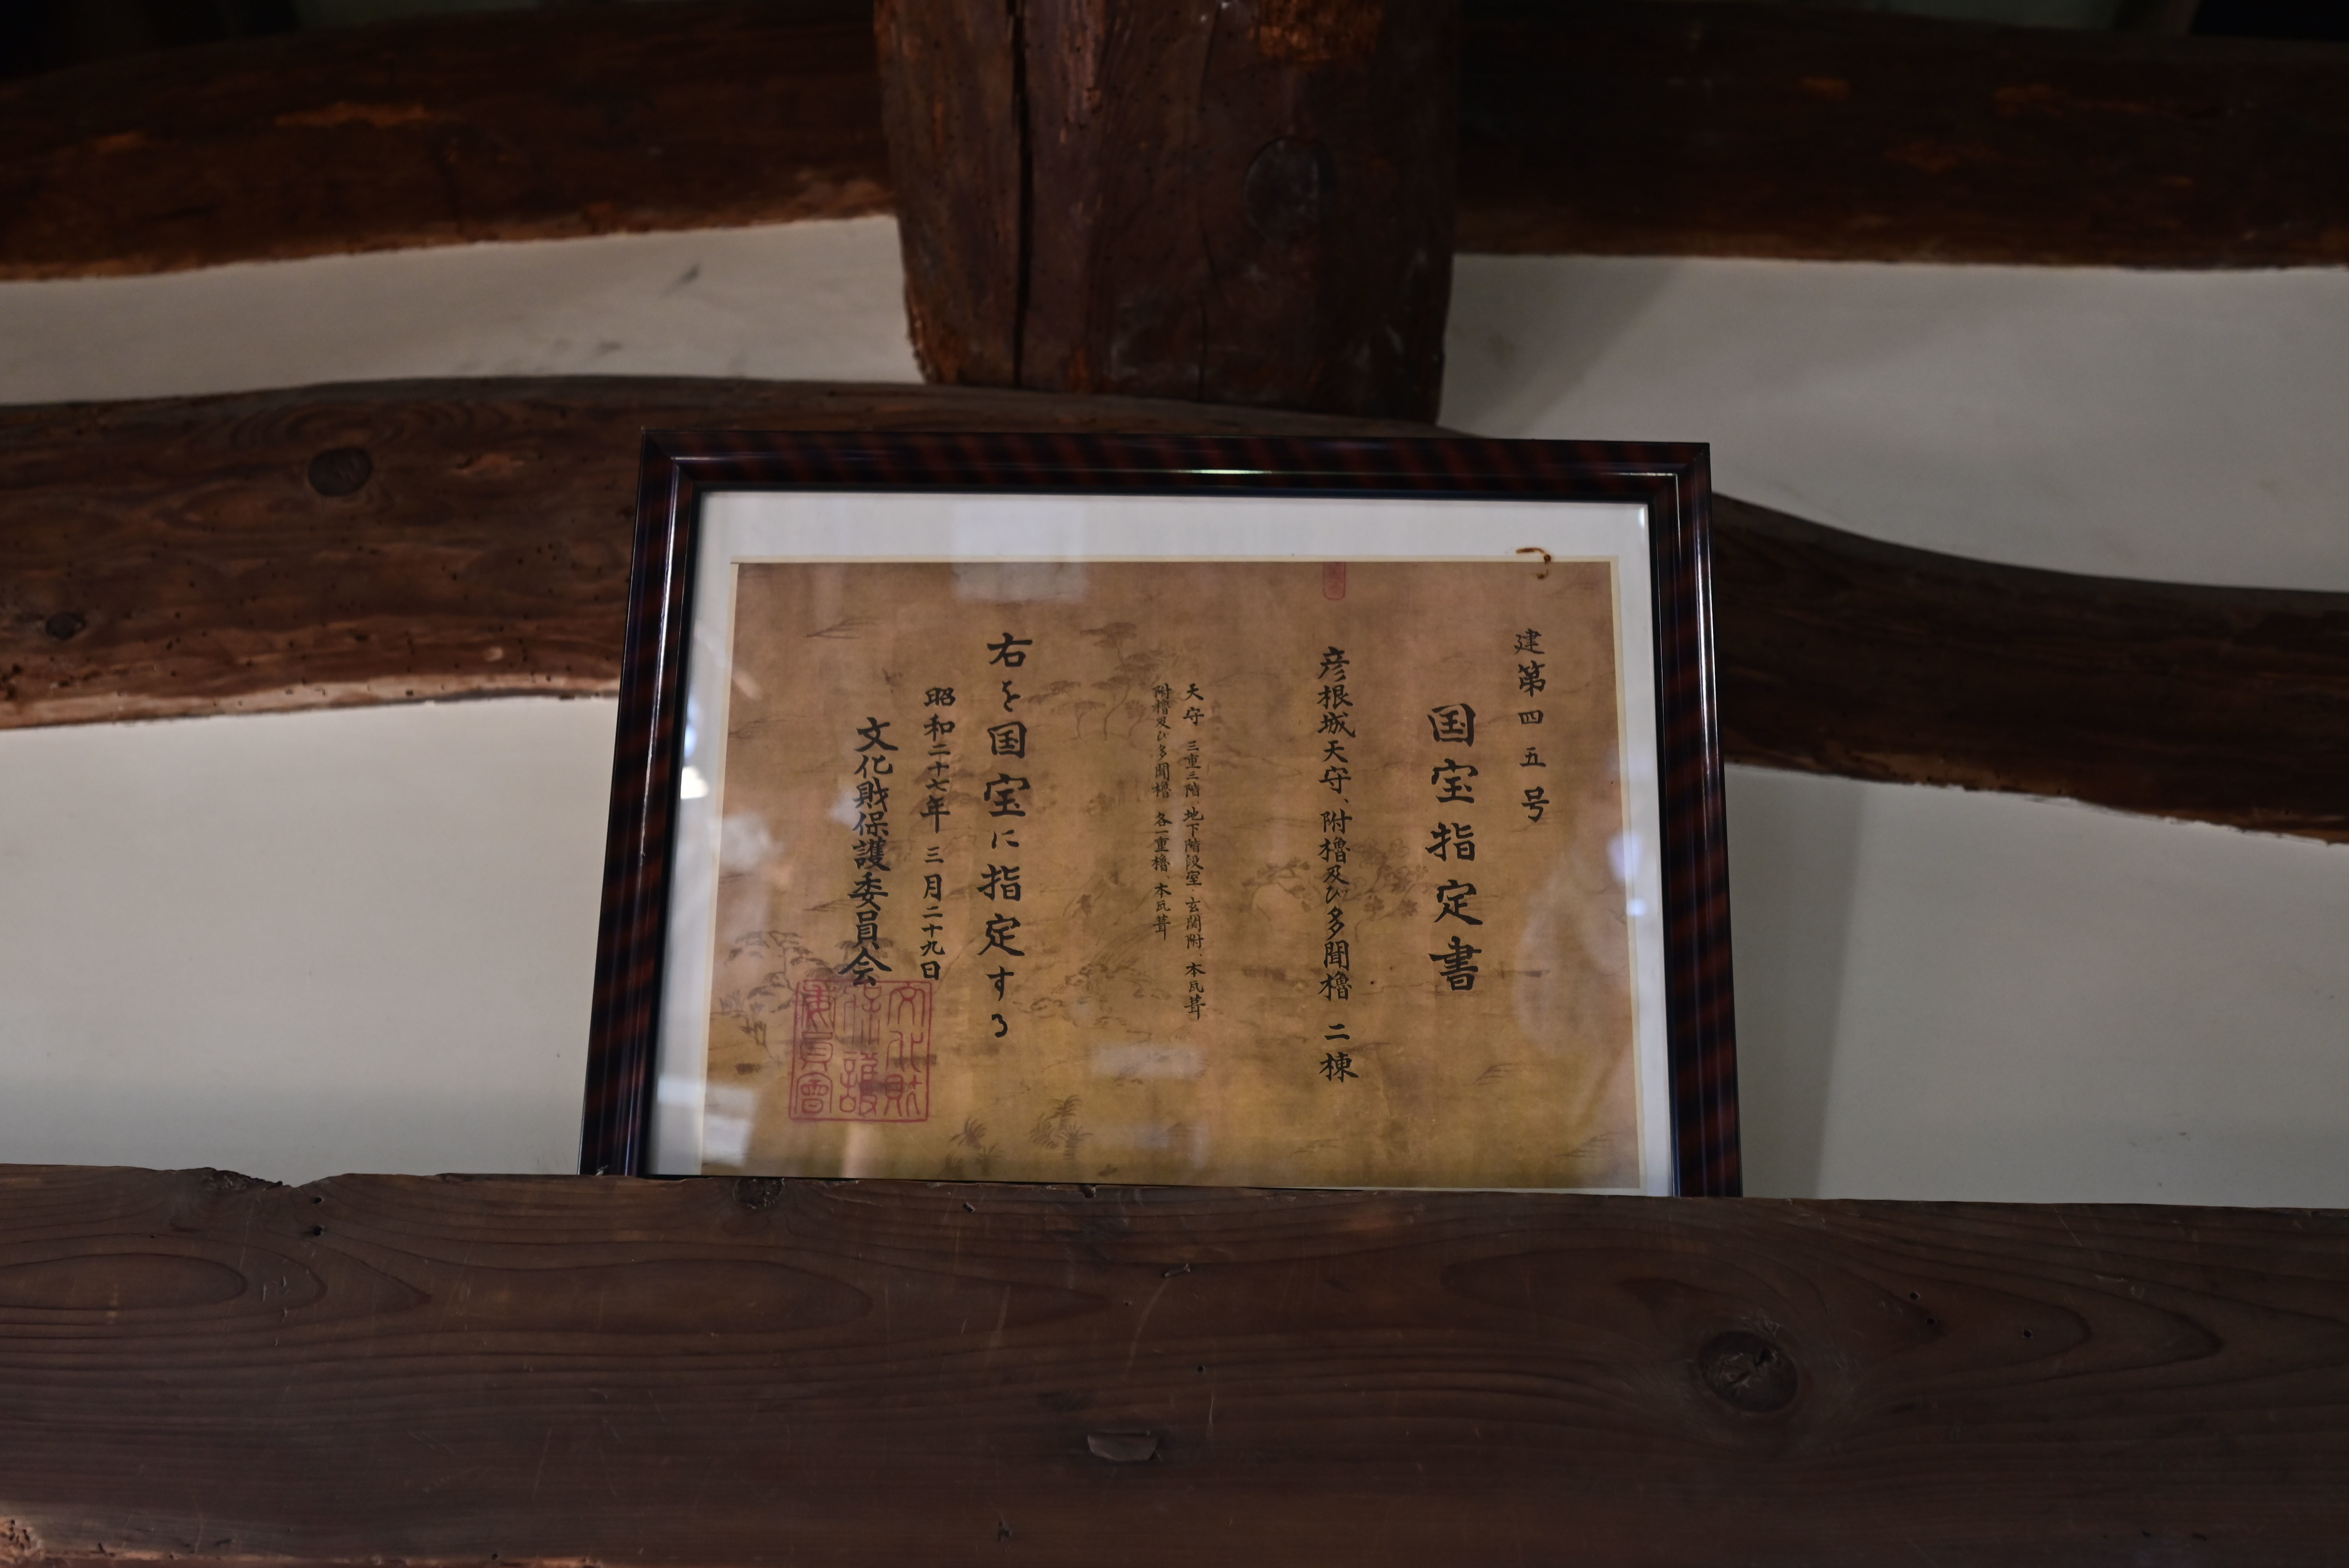 建第四五号
国宝指定書
彦根城天守、附櫓及び多聞櫓 二棟
天守 三重三階、地下階段室、玄関附、本瓦葺
附櫓及び多聞櫓 各一重櫓、本瓦葺
右を国宝に指定する
昭和二十七年 三月二十九日
文化財保護委員会
文化財
保護
委員會